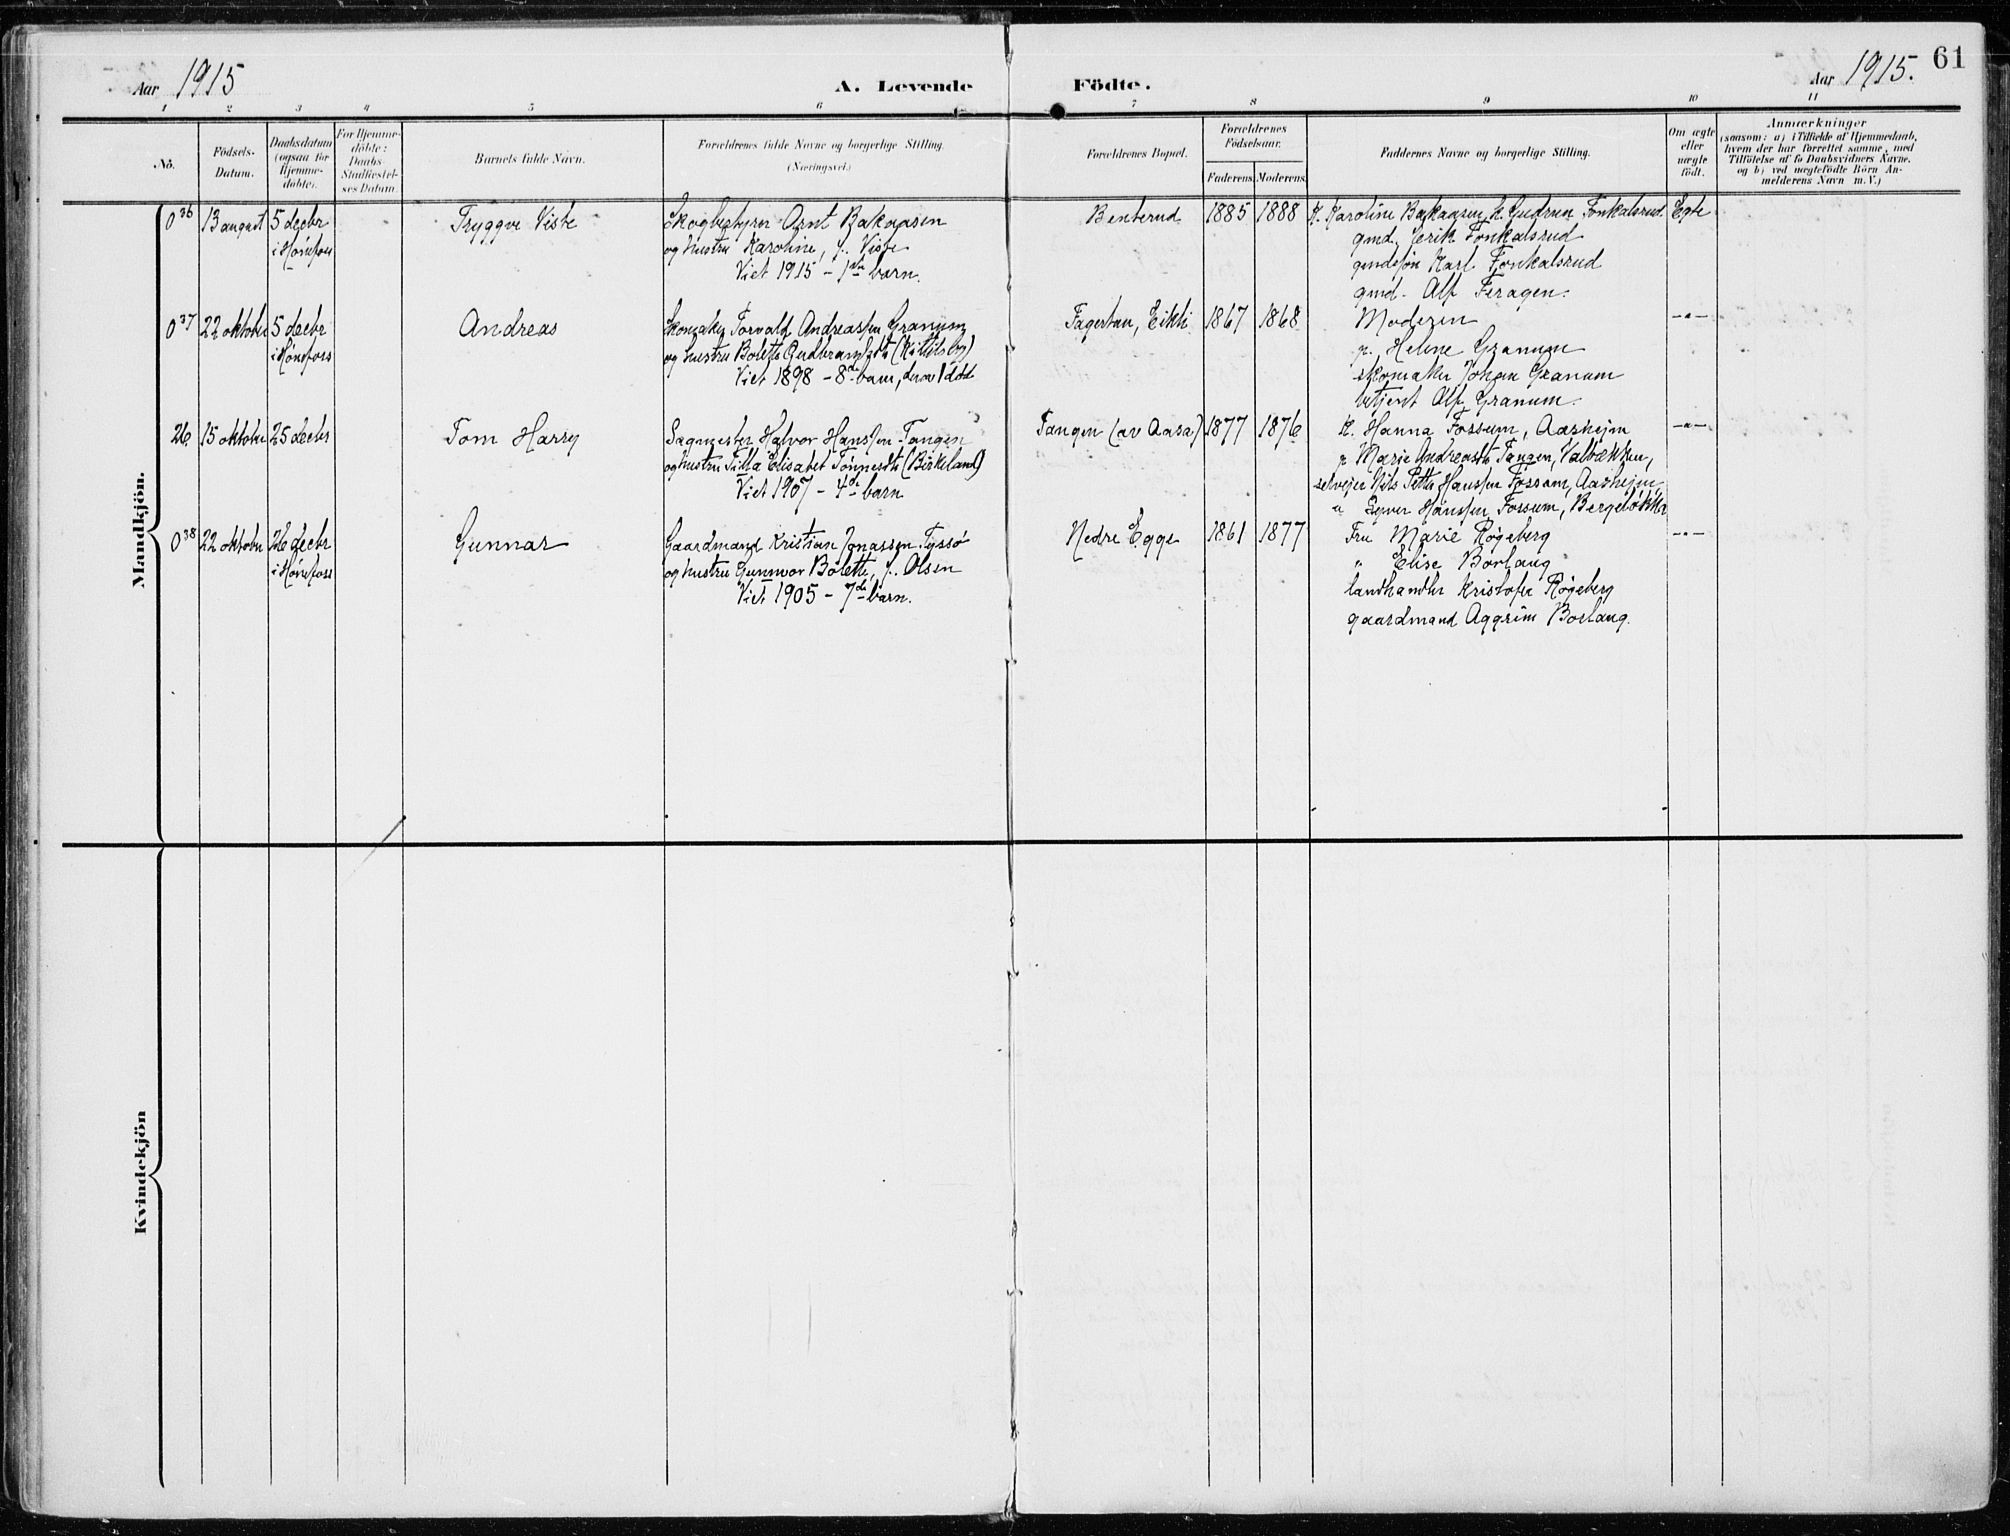 61
Aar 1915
A. Levende Födte.
Aar 1915.
1 2 3 4 5 6 7 8 9 10 11
No.
Födsels-
Datum.
Daabsdatum
(ogsaa for
Hjemme-
döbte).
For Hjemme-
döbte:
Daabs-
Stadfæstel-
ses Datum.
Barnets fulde Navn.
Forældrenes fulde Navne og borgerlige Stilling.
(Næringsvei.)
Forældrenes Bopæl.
Forældrenes
Födselsaar.
Faderens. Moderens.
Faddernes Navne og borgerlige Stilling.
Om ægte
eller
uægte
födt.
Anmærkninger
(saasom: a) i Tilfælde af Hjemmedaab,
hvem der har forrettet samme, med
Tilföielse af to Daabsvidners Navne.
og b) ved uægtefödte Börn An-
melderens Navn m. V.)
Mandkjön.
0 36 13 august 5 decbr
i Hønefoss
Tryggve Viste
Skogbestyrer Arnt Bakaasen
og hustru Karoline, f. Viste
Viet 1915 - 1ste barn.
Benterud 1885 1888
K. Karoline Bakaasen, k. Gudrun Fonkalsrud
gmd. Jerik Fonkalsrud
gmdssøn Karl Fonkalsrud
gmd. Alf Feragen.
Egte
0 37 22 oktober 5 decbr
i Hønefoss
Andreas
Skomaker Torvald Andreassen Granum
og hustru Bolette Gudbrandsdt. (Kittilsby)
Viet 1898 - 8de barn, derav 1 død
Fagertun, Eikli 1867 1868
Moderen
p. Helene Granum
skomaker Johan Granum
betjent Alf Granum.
-"-
26 15 oktober 25 decbr
Tom Harry
Sagmester Halvor Hanssen Tangen
og hustru Tilla Elisabet Tønnesdt. (Birkeland)
Viet 1907 - 4de barn
Tangen (av Aasa) 1877 1876
K. Hanna Fossum, Aasheim
p. Marie Andreasdt. Tangen, Valbækken,
selveier Nils Petter Hanssen Fossum, Aasheim,
" Syver Hanssen Fossum, Bergeløkka
-"-
0 38 22 oktober 26 decbr
i Hønefoss
Gunnar
Gaardmand Kristian Jonassen Tyssø
og hustru Gunnvor Bolette, f. Olsen
Viet 1905 - 7de barn.
Nedre Egge 1861 1877
Fru Marie Røgeberg
" Elise Borlaug
landhandler Kristofer Røgeberg
gaardmand Aggrim Borlaug.
-"-
Kvindekjön